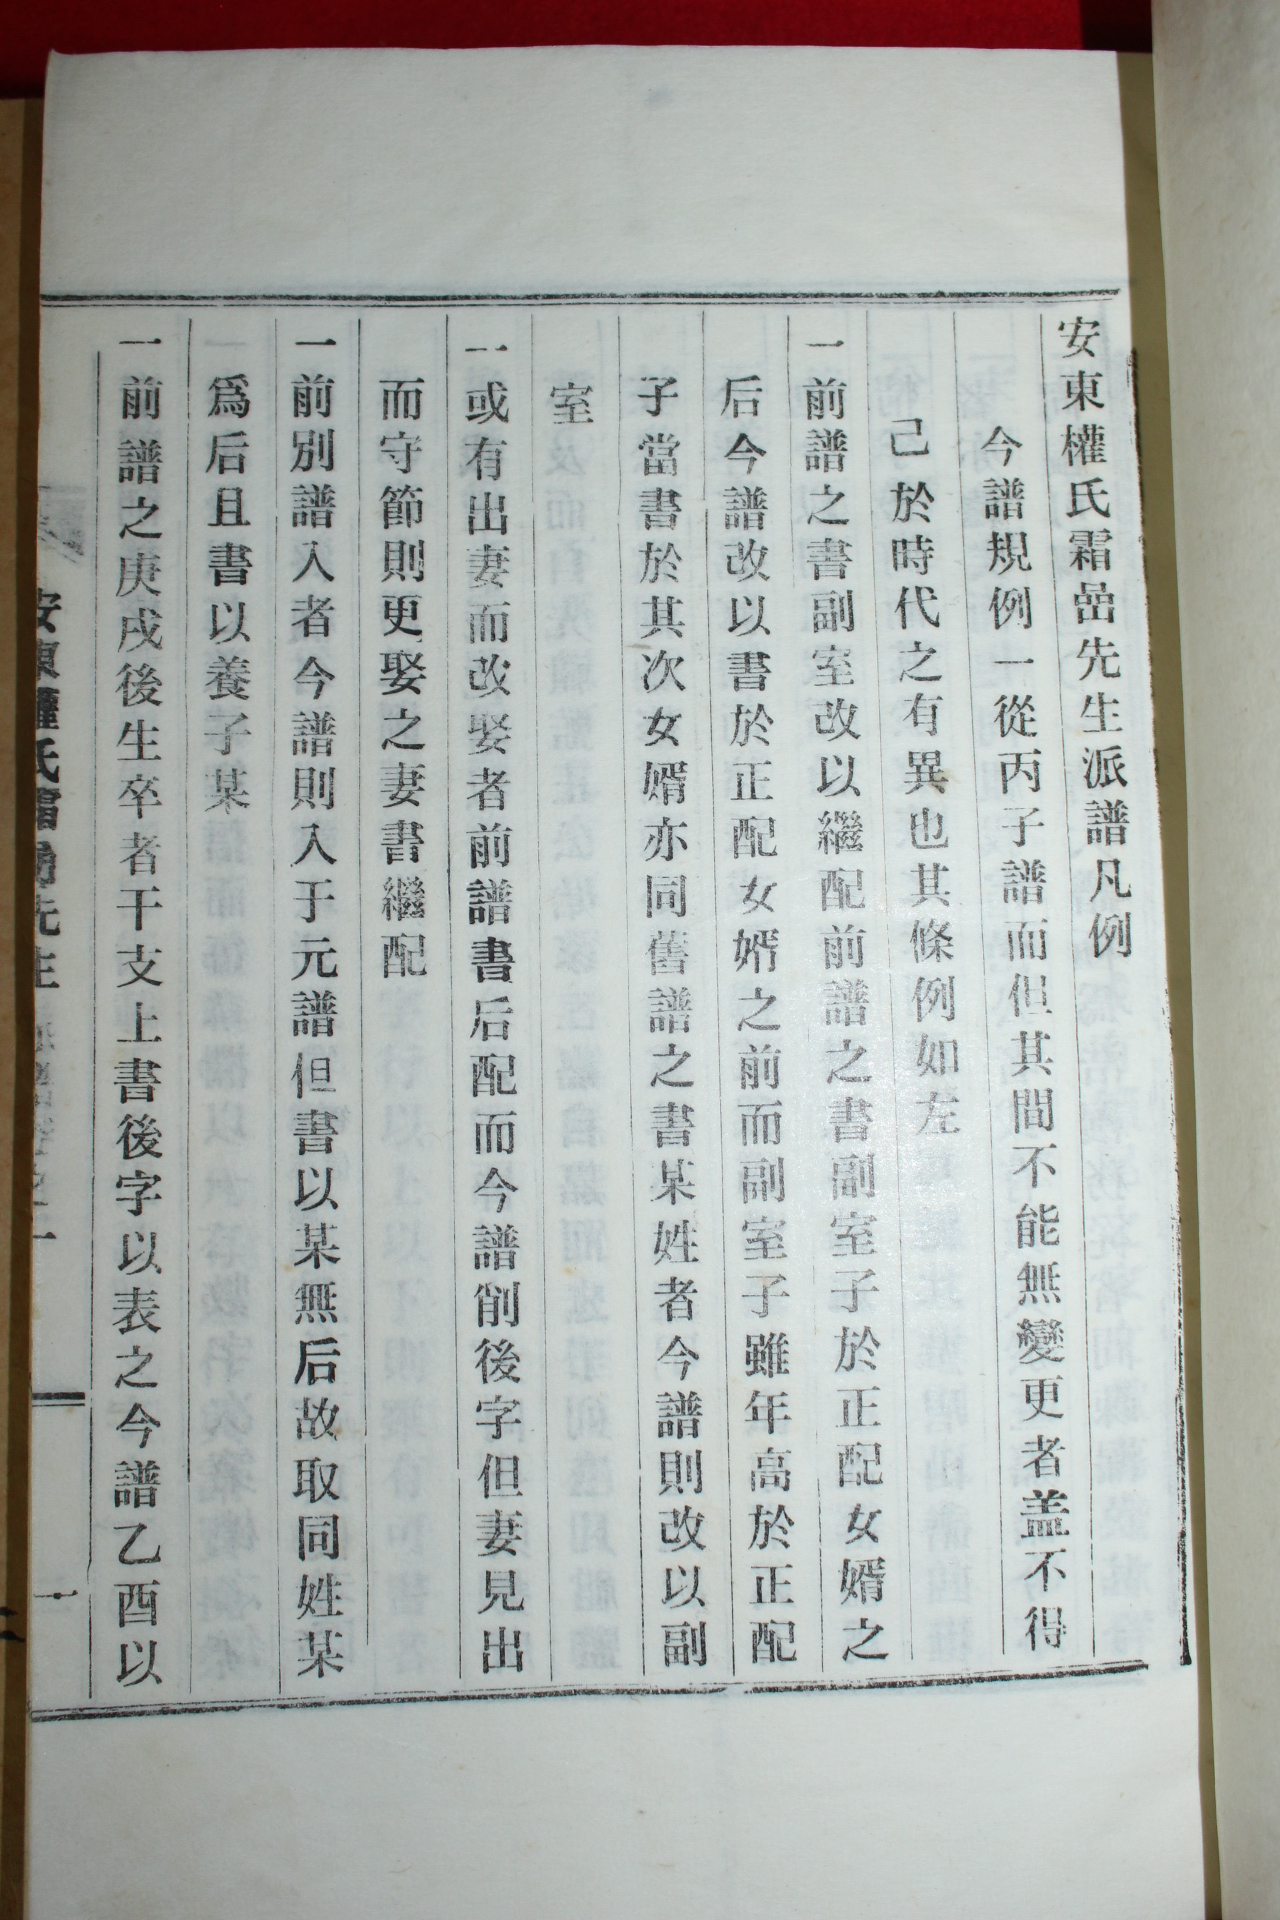 安東權氏霜嵒先生派譜凡例
今譜規例一從丙子譜而但其間不能無變更者盖不得
己於時代之有異也其條例如左
一前譜之書副室改以繼配前譜之書副室子於正配女婿之
后今譜改以書於正配女婿之前而副室子雖年高於正配
子當書於其次女婿亦同舊譜之書某姓者今譜則改以副
室
一或有出妻而改娶者前譜書后配而今譜削後字但妻見出
而守節則更娶之妻書繼配
一前別譜入者今譜則入于元譜但書以某無后故取同姓某
爲后且書以養子某
一前譜之庚戌後生卒者干支上書後字以表之今譜乙酉以
安東權氏霜嵒先生
一